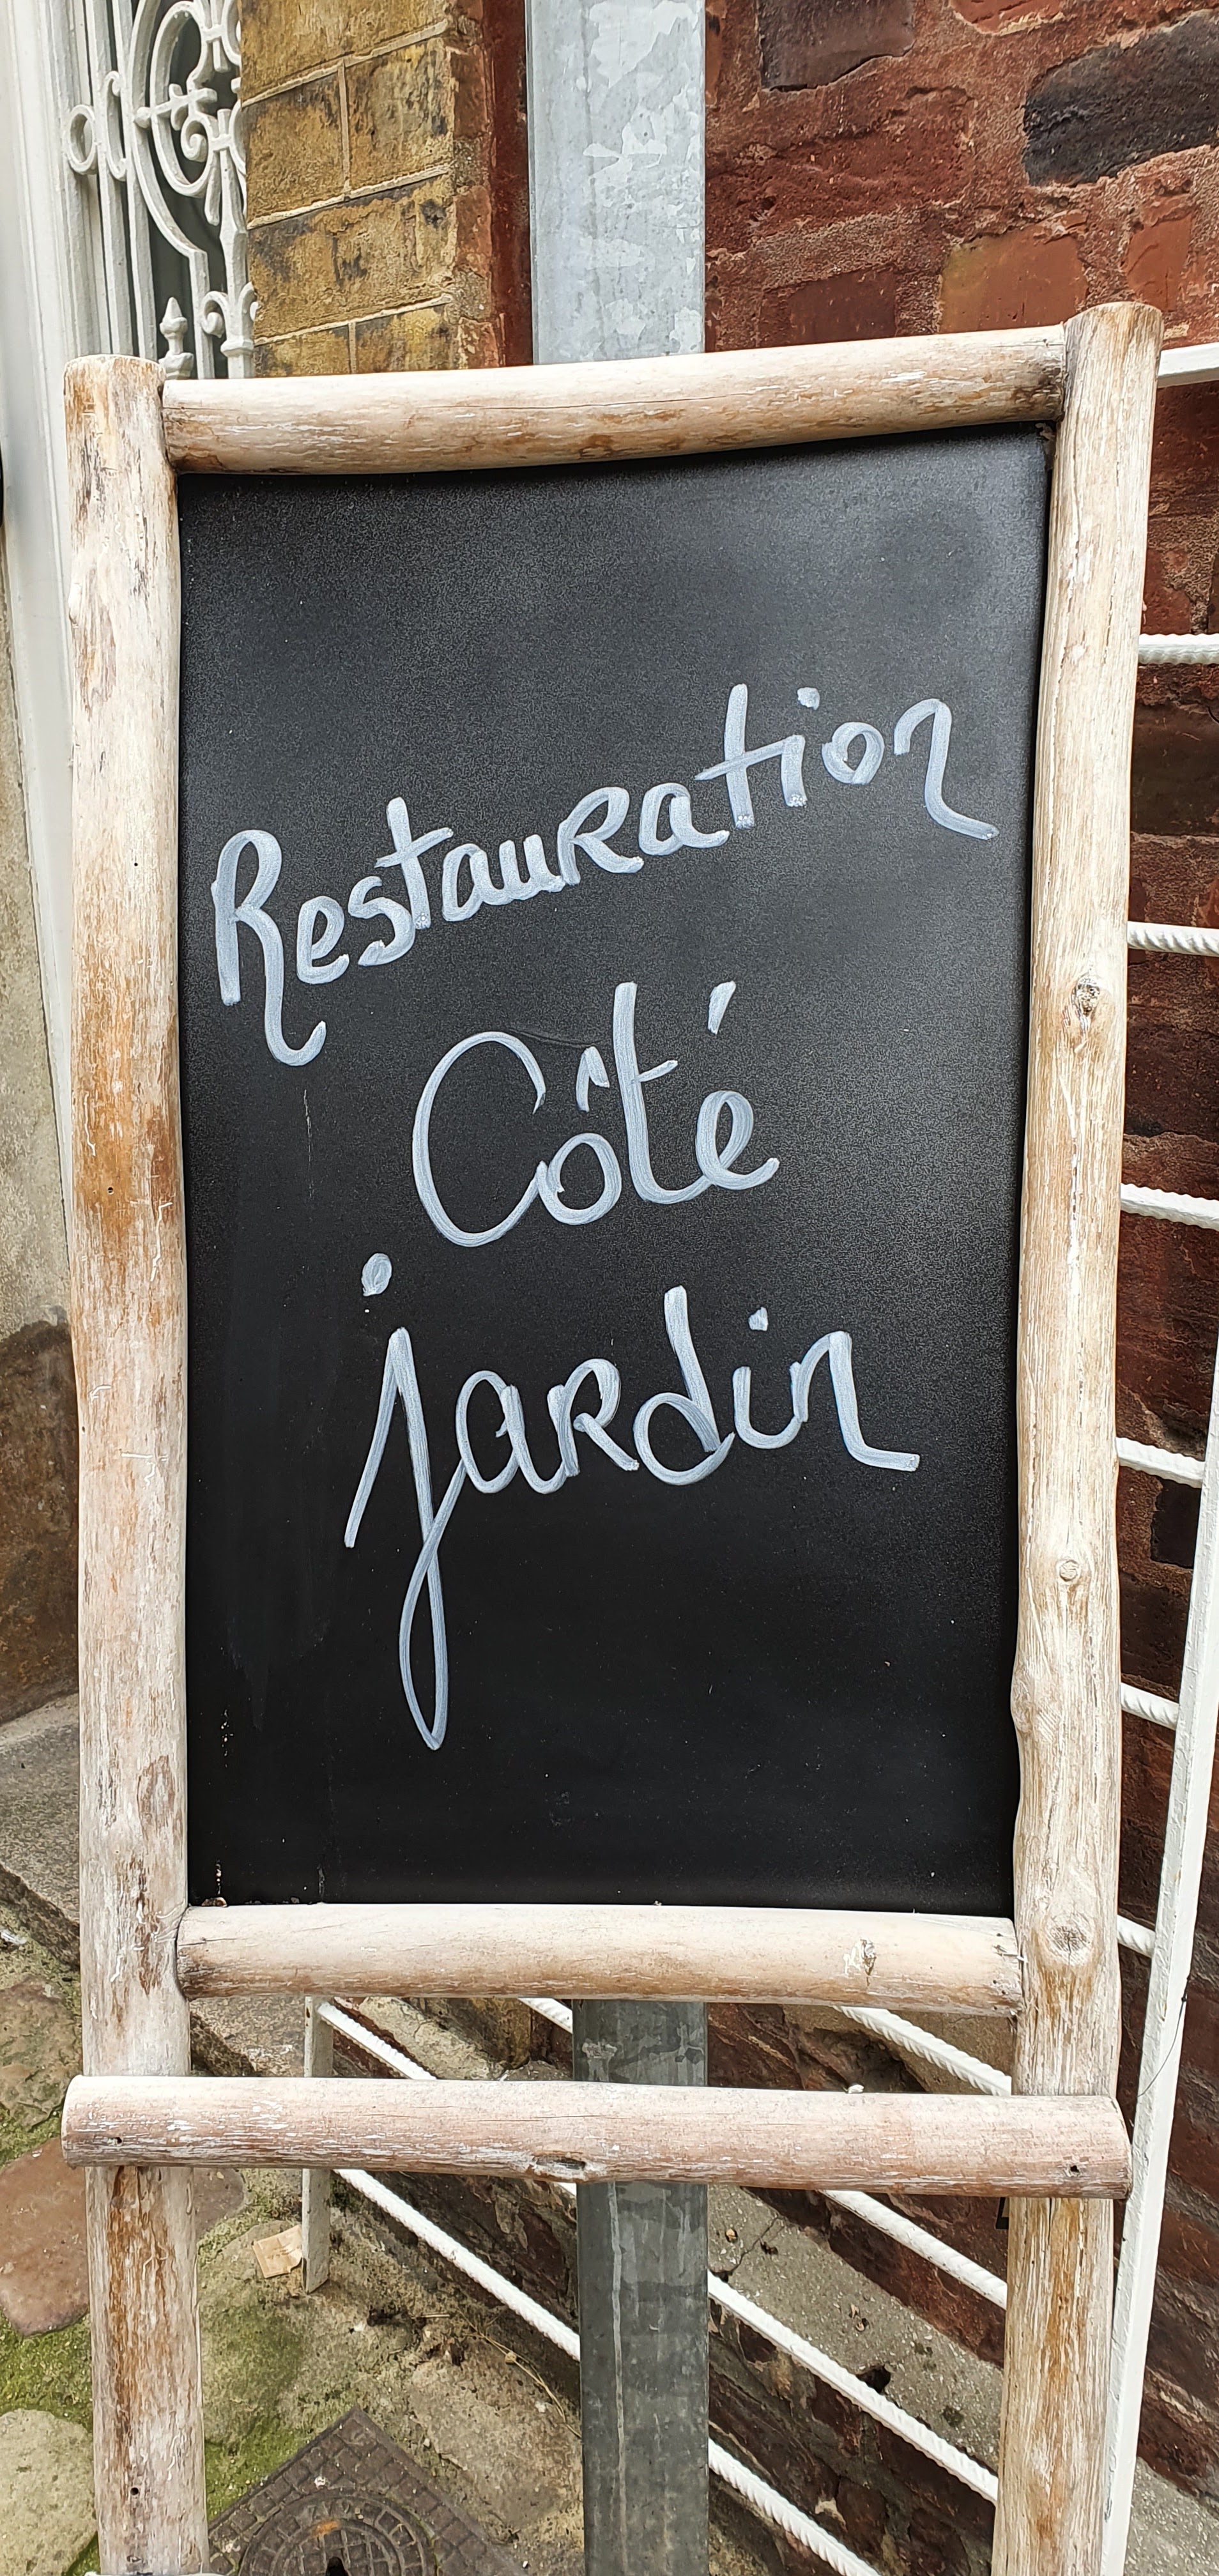 Restauration
Côté
jardin